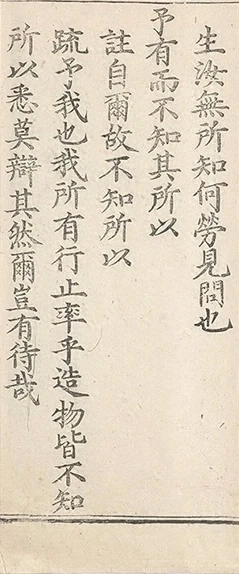 生汝無所知何勞見問也
予有而不知其所以
註自爾故不知所以
疏予我也我所有行止率乎造物皆不知
所以悉莫辯其然爾豈有待哉